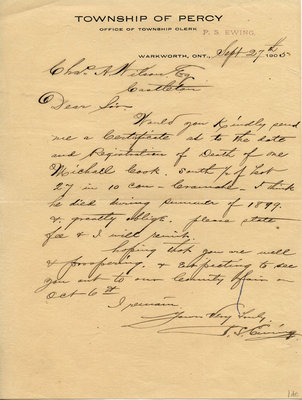 TOWNSHIP OF PERCY
OFFICE OF TOWNSHIP CLERK
P. S. EWING.
WARKWORTH, ONT., Sept 27th 1905
Chas. A Wilson Esq
Castleton
Dear Sir
Would you Kindly send
me a Certificate as to the date
and Registration of Death of one
Michael Cook. south pt lot
27 in 10 con Cramahe I think
he died during summer of 1899
& greatly oblige. please state
fee & I will remit.
hoping that you are well
& prospering. & expecting to see
you out to our County affair on
Oct 6th
I remain
Yours Very Truly.
P. S. Ewing